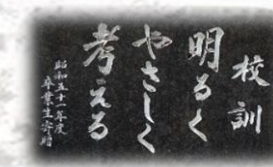 校訓
明るく
やさしく
考える
昭和五十一年度
卒業生寄贈